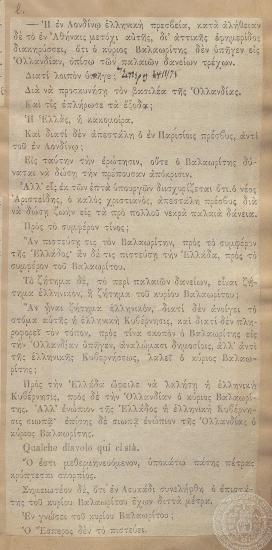 2.
— Ἡ ἐν Λονδίνῳ ἑλληνικὴ πρεσβεία, κατὰ ἀλήθειαν
δὲ τὸ ἐν Ἀθήναις μετόχι αὐτῆς, δι' ἀττικῆς ἐφημερίδος
διακηρύσσει, ὅτι ὁ κύριος Βαλαωρίτης δὲν ὑπῆγεν εἰς
Ὁλλανδίαν, ὀπίσω τῶν παλαιῶν δανείων τρέχων.
Διατί λοιπὸν ὑπῆγε;
Διὰ νὰ προσκυνήσῃ τὸν βασιλέα τῆς Ὁλλανδίας.
Καὶ τίς ἐπλήρωσε τὰ ἔξοδα;
Ἡ Ἑλλάς, ἡ κακομοίρα.
Καὶ διατί δὲν ἀπεστάλη ὁ ἐν Παρισίοις πρέσβυς, ἀντὶ
τοῦ ἐν Λονδίνῳ;
Εἰς ταύτην τὴν ἐρώτησιν, οὔτε ὁ Βαλαωρίτης δύ-
ναται νὰ δώσῃ τὴν πρέπουσαν ἀπόκρισιν.
Ἀλλ' εἷς ἐκ τῶν ἑπτὰ ὑπουργῶν διισχυρίζεται ὅτι ὁ νέος
Ἀριστείδης, ὁ καλὸς χριστιανός, ἀπεστάλη πρέσβυς διὰ
νὰ δώσῃ ζωὴν εἰς τὰ πρὸ πολλοῦ νεκρὰ παλαιὰ δάνεια.
Πρὸς τὸ συμφέρον τίνος;
Ἂν πιστεύσῃ τις τὸν Βαλαωρίτην, πρὸς τὸ συμφέρον
τῆς Ἑλλάδος· ἂν δέ τις πιστεύσῃ τὴν Ἑλλάδα, πρὸς τὸ
συμφέρον τοῦ Βαλαωρίτου.
Τὸ ζήτημα δέ, τὸ περὶ παλαιῶν δανείων, εἶναι ζή-
τημα ἑλληνικόν, ἢ ζήτημα τοῦ κυρίου Βαλαωρίτου;
Ἂν ᾖναι ζήτημα ἑλληνικόν, διατί δὲν ἀνοίγει τὸ
στόμα αὐτῆς ἡ ἑλληνικὴ Κυβέρνησις, καὶ διατί δὲν πλη-
ροφορεῖ τὸν τόπον, πρὸς τίνα σκοπὸν ὁ Βαλαωρίτης εἰς
τὴν Ὁλλανδίαν ὑπῆγεν, ἀναλώμασι δημοσίοις, ἀλλ' ἀντὶ
τῆς ἑλληνικῆς Κυβερνήσεως, λαλεῖ ὁ κύριος Βαλαω-
ρίτης;
Πρὸς τὴν Ἑλλάδα ὤφειλε νὰ λαλήσῃ ἡ ἑλληνικὴ
Κυβέρνησις, πρὸς δὲ τὴν Ὁλλανδίαν ὁ κύριος Βαλαω-
ρίτης. Ἀλλ' ἐνώπιον τῆς Ἑλλάδος ἡ ἑλληνικὴ Κυβέρνη-
σις σιωπᾷ· ἐπίσης δὲ σιωπᾷ ἐνώπιον τῆς Ὁλλανδίας ὁ
κύριος Βαλαωρίτης.
Qualche diavolo qui ci sta.
Ὅ ἐστι μεθερμηνευόμενον, ὑποκάτω πάσης πέτρας
κρύπτεται σκορπιός.
Σημειωτέον δέ, ὅτι ἐν Λευκάδι συνελήφθη ὁ ἐπιστά-
της τοῦ κυρίου Βαλαωρίτου ἔχων διττὰ μέτρα.
Ἐν γνώσει τοῦ κυρίου Βαλαωρίτου;
Ὁ Ἕσπερος δὲν τὸ πιστεύει.